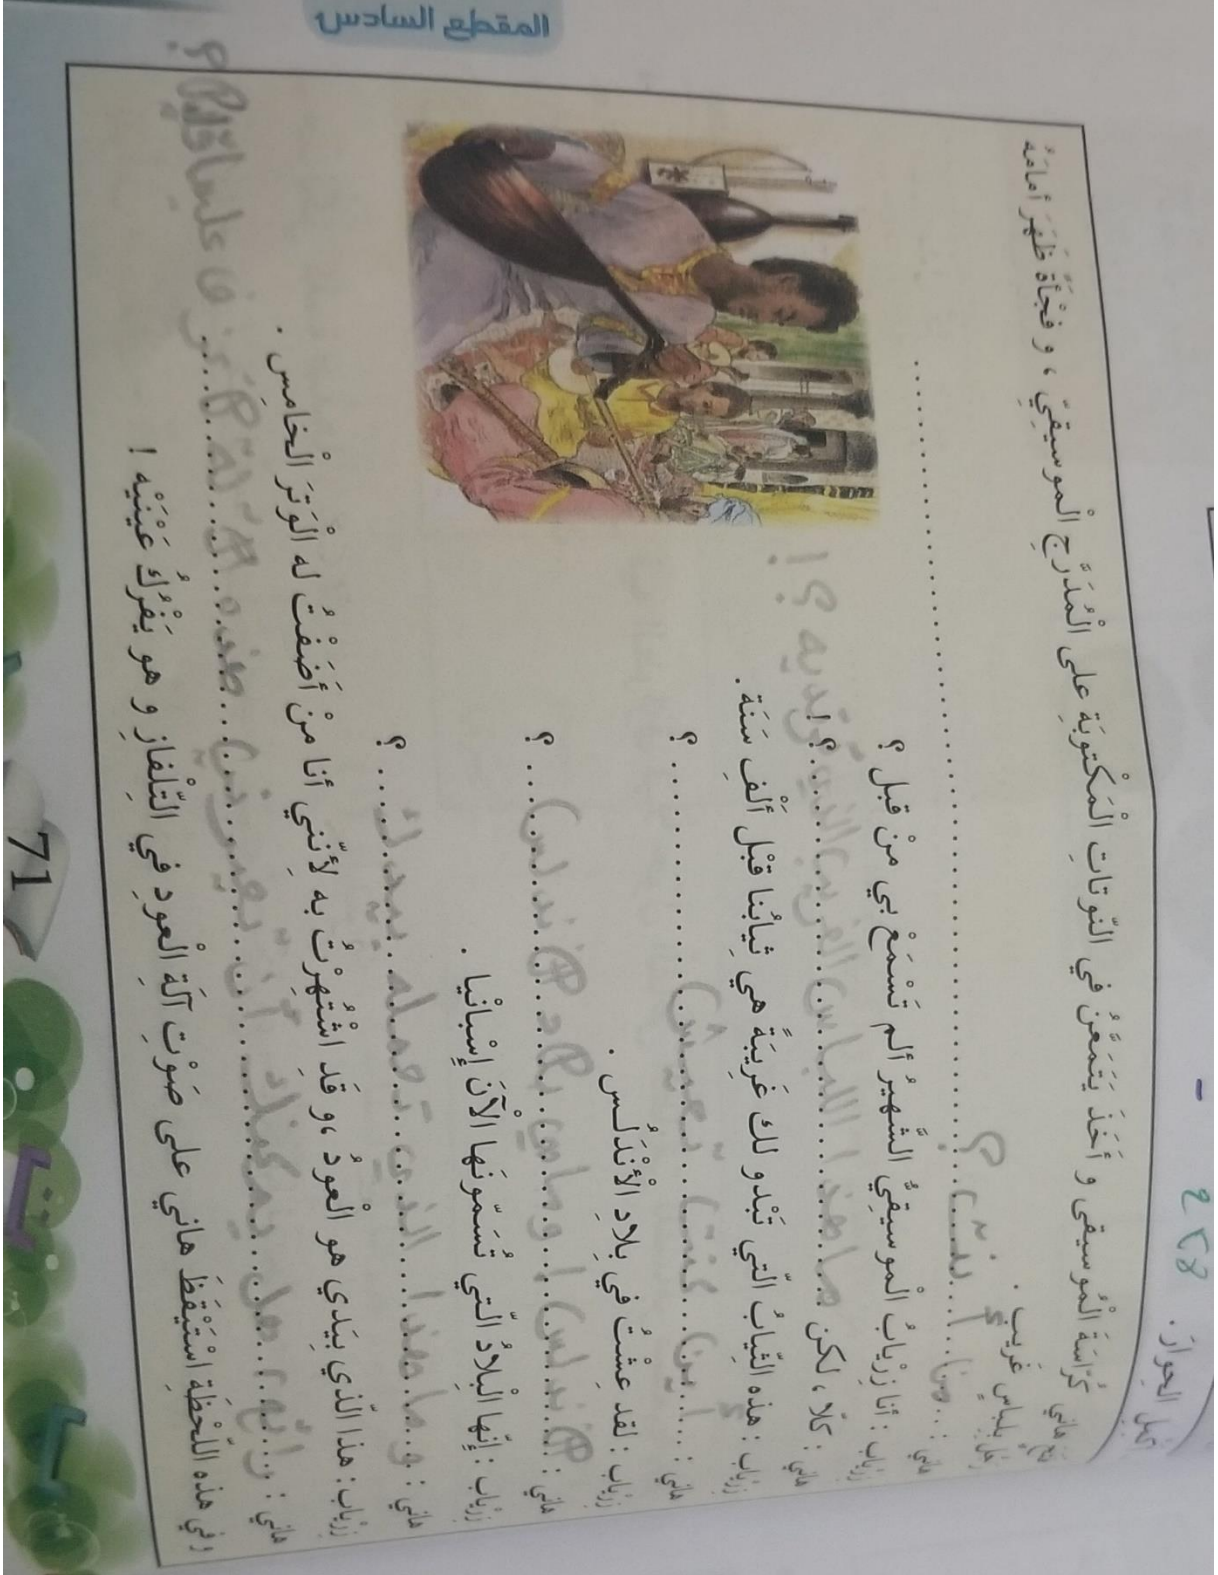 المقطع السادس
أكمل الحوار.
فتح هاني كُرّاسَةَ الْمُوسيقى و أَخَذَ يَتَمَعَّنُ في النّوتاتِ الْمَكْتوبَةِ على الْمُدَرَّجِ الْموسيقِيِّ ، و فَجْأَةً ظَهَرَ أمامَهُ
رَجُلٌ بِلِباسٍ غَريبٍ .
هاني : من أنتَ ؟
زرياب : أنا زِرْيابُ الْموسيقِيُّ الشَّهيرُ ألم تَسْمَعْ بي مِنْ قبل ؟
هاني : كلّا ، لكن ما هذا اللباس الغريب الذي ترتديه ؟!
زرياب : هذه الثّيابُ الّتي تَبْدو لك غَريبَةً هيَ ثيابُنا قَبْلَ أَلْفِ سَنَة .
هاني : أين كنت تعيش ؟
زرياب : لقد عِشْتُ في بِلادِ الأَنْدَلُس .
هاني : الأندلس ! وما هي بلاد الأندلس ؟
زرياب : إنّها الْبِلادُ الّتي تُسَمّونَها الْآنَ إِسْبانْيا .
هاني : و ما هذا الذي تحمله بيدك ؟
زرياب : هذا الّذي بيَدي هو الْعودُ ، و قَدِ اشْتُهِرْتُ به لأنّني أنا مَنْ أَضَفْتُ له الْوَتَرَ الْخامِسَ .
هاني : رائع هل يمكنك أن تعيرني هذه الآلة لأعزف عليها قليلا ؟
و في هذه اللَّحْظَةِ اسْتَيْقَظَ هاني على صَوْتِ آلَةِ الْعودِ في التّلْفازِ و هو يَفْرُكُ عَيْنَيْه !
71